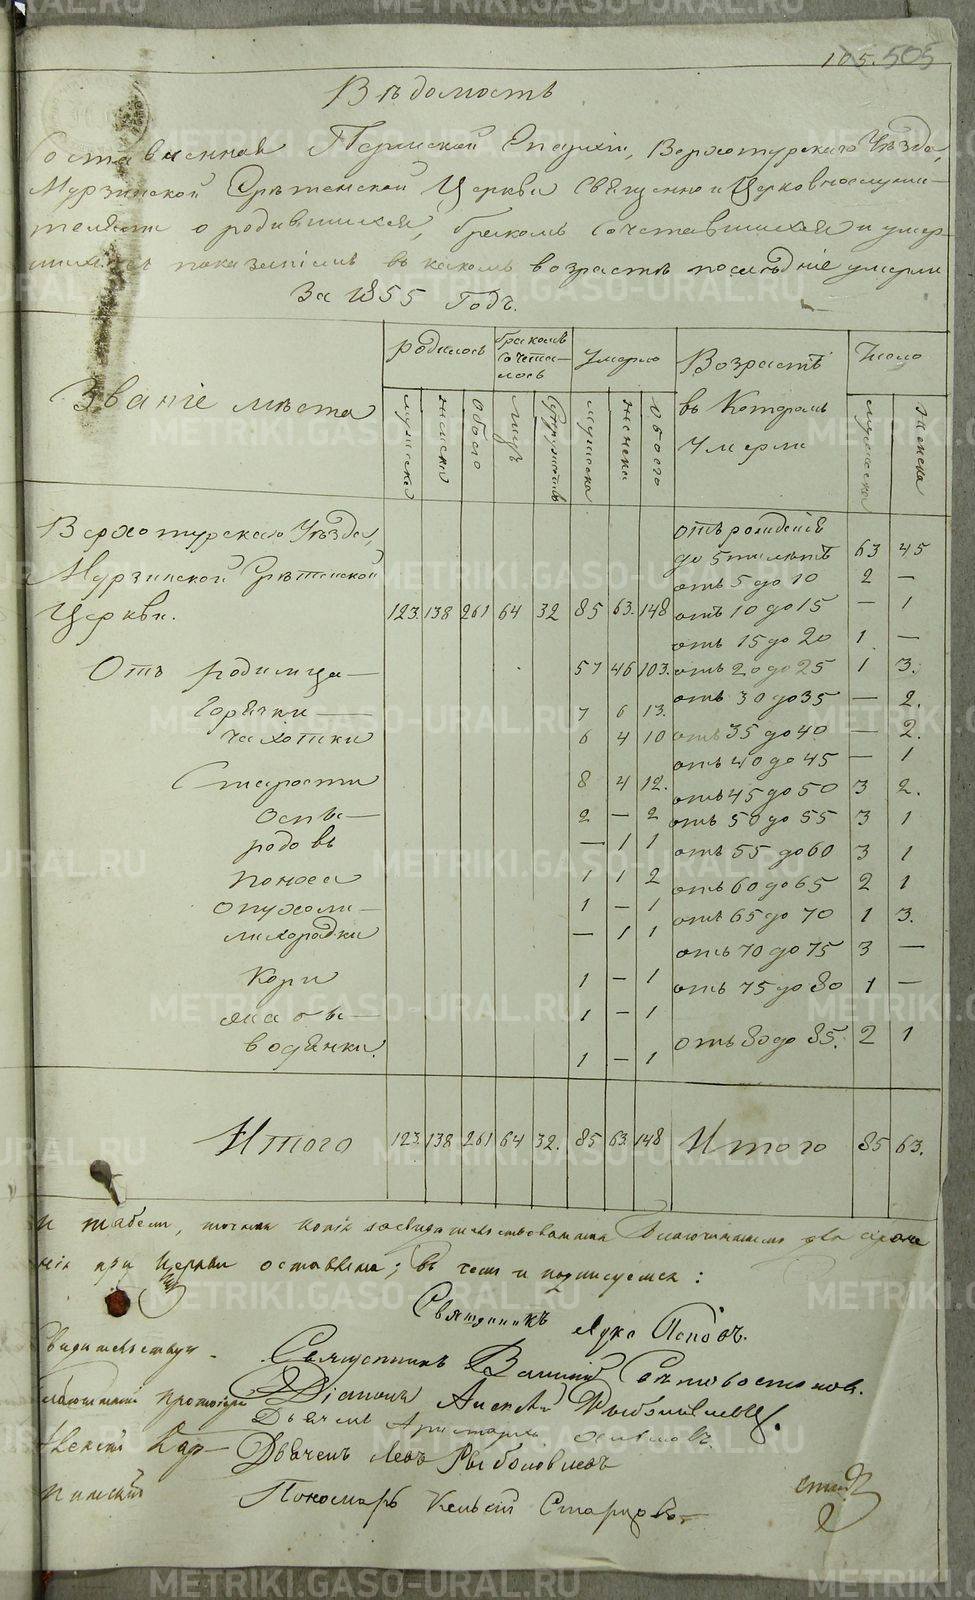 105. 505
Вѣдомость
Составленная Пермской Епархіи, Верхотурскаго Уѣзда,
Мурзинской Срѣтенской Церкви Священно и Церковнослужи-
телями о родившихся, бракомъ сочетавшихся и умер-
шихъ съ показаніемъ въ какомъ возрастѣ послѣдніе умерли
За 1855 Годъ.
Званіе мѣста
родилось
бракомъ сочета-лось
Умерло
Возрастъ въ Которомъ Умерли
Число
мужеска женска обоего лицъ Супружествъ мужеска женска обоего мужеска женска
Верхотурскаго Уѣзда, отъ рожденія
до 5ти лѣтъ 63 45
Мурзинской Срѣтенской отъ 5 до 10 2 —
Церкви. 123. 138 261 64 32 85 63. 148 отъ 10 до 15 — 1
отъ 15 до 20 1 —
Отъ родимца — 57 46 103. отъ 20 до 25 1 3.
отъ 30 до 35 — 2.
Горячки — 7 6 13.
Чахотки 6 4 10 отъ 35 до 40 — 2.
отъ 40 до 45 — 1
Старости 8 4 12. отъ 45 до 50 3 2.
Оспы — 2 — 2 отъ 50 до 55 3 1
родовъ — 1 1 отъ 55 до 60 3 1
Поноса 1 1 2 отъ 60 до 65 2 1
Опухоли — 1 — 1 отъ 65 до 70 1 3.
лихорадки — 1 1 отъ 70 до 75 3 —
Кори 1 — 1 отъ 75 до 80 1 —
1 — 1
водянки. 1 — 1 отъ 80 до 85. 2 1
Итого 123. 138 261 64 32. 85 63. 148 Итого 85 63.
и табели, точная копія
при Церкви оставлена; въ чемъ и подписуемся:
Священникъ Лука Поповъ.
Священникъ Василій
Діаконъ Алексѣй
Дьячекъ Аристархъ
Дьячекъ Левъ Рыболовлевъ
Пономарь Старцовъ
METRIKI.GASO-URAL.RU